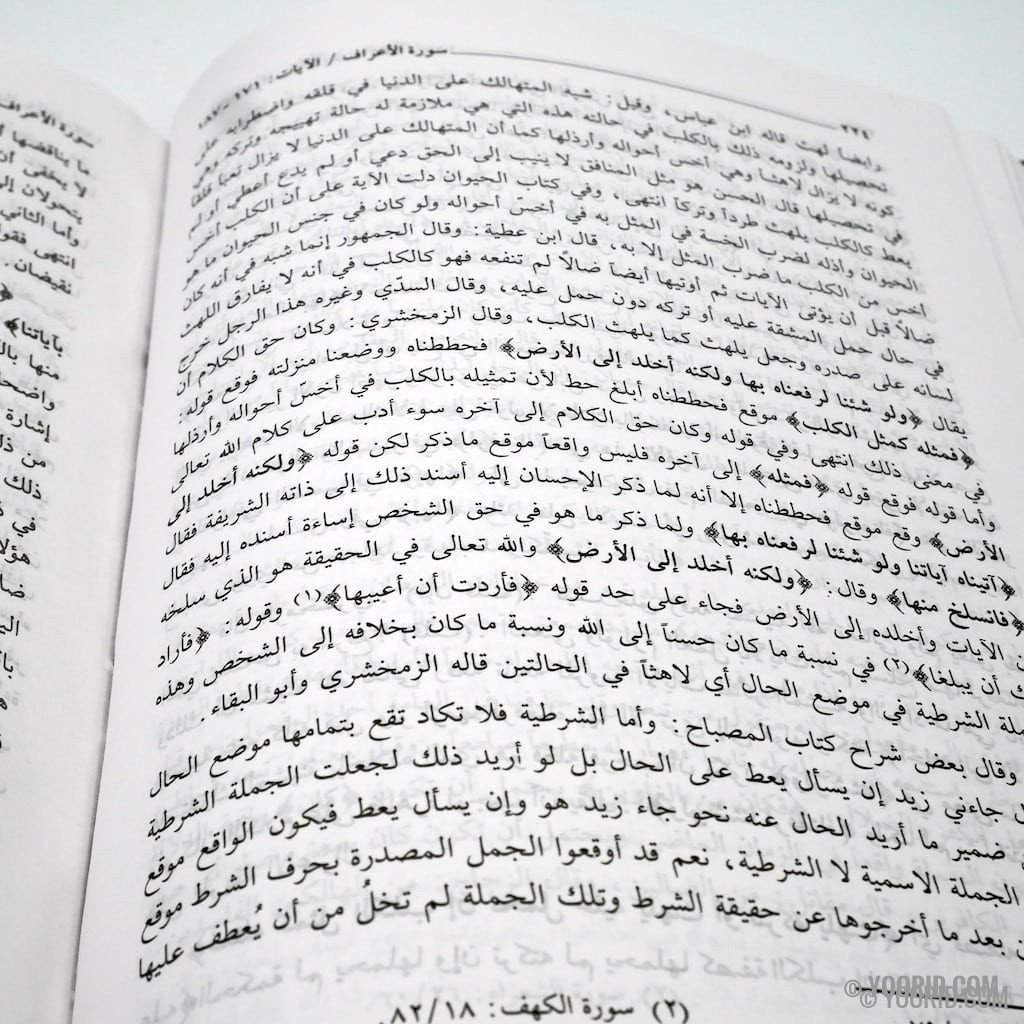 سورة الأعراف / الآيات: ١٧١ - ١٨٧
٢٢٤
وأيضاً لهث قاله ابن عباس، وقيل: شبه المتهالك على الدنيا في قلقه واضطرابه على
تحصيلها ولزومه ذلك بالكلب في حالته هذه التي هي ملازمة له حالة تهييجه وتركه وهي
كونه لا يزال لاهثا وهي أخس أحواله وأرذلها كما أن المتهالك على الدنيا لا يزال تعبا قلقا
في تحصيلها قال الحسن هو مثل المنافق لا ينيب إلى الحق دعي أو لم يدع أعطي أو لم
يعط كالكلب يلهث طرداً وتركاً انتهى، وفي كتاب الحيوان دلت الآية على أن الكلب أخس
الحيوان وأذله لضرب الخسة في المثل به في أخسّ أحواله ولو كان في جنس الحيوان ما هو
أخس من الكلب ما ضرب المثل إلا به، قال ابن عطية: وقال الجمهور إنما شبه في أنه كان
ضالاً قبل أن يؤتى الآيات ثم أوتيها أيضاً ضالاً لم تنفعه فهو كالكلب في أنه لا يفارق اللهث
في حال حمل المشقة عليه أو تركه دون حمل عليه، وقال السدّي وغيره هذا الرجل خرج
لسانه على صدره وجعل يلهث كما يلهث الكلب، وقال الزمخشري: وكان حق الكلام أن
يقال ﴿ولو شئنا لرفعناه بها ولكنه أخلد إلى الأرض﴾ فحططناه ووضعنا منزلته فوقع قوله:
﴿فمثله كمثل الكلب﴾ موقع فحططناه أبلغ حط لأن تمثيله بالكلب في أخسّ أحواله وأرذلها
في معنى ذلك انتهى وفي قوله وكان حق الكلام إلى آخره سوء أدب على كلام الله تعالى
وأما قوله فوقع قوله ﴿فمثله﴾ إلى آخره فليس واقعاً موقع ما ذكر لكن قوله ﴿ولكنه أخلد إلى
الأرض﴾ وقع موقع فحططناه إلا أنه لما ذكر الإحسان إليه أسند ذلك إلى ذاته الشريفة فقال
﴿آتيناه آياتنا ولو شئنا لرفعناه بها﴾ ولما ذكر ما هو في حق الشخص إساءة أسنده إليه فقال
﴿فانسلخ منها﴾ وقال: ﴿ولكنه أخلد إلى الأرض﴾ والله تعالى في الحقيقة هو الذي سلخه
الآيات وأخلده إلى الأرض فجاء على حد قوله ﴿فأردت أن أعيبها﴾(١) وقوله: ﴿فأراد
أن يبلغا﴾(٢) في نسبة ما كان حسناً إلى الله ونسبة ما كان بخلافه إلى الشخص وهذه
الشرطية في موضع الحال أي لاهثاً في الحالتين قاله الزمخشري وأبو البقاء.
وقال بعض شراح كتاب المصباح: وأما الشرطية فلا تكاد تقع بتمامها موضع الحال
جاءني زيد إن يسأل يعط على الحال بل لو أريد ذلك لجعلت الجملة الشرطية
ضمير ما أريد الحال عنه نحو جاء زيد هو وإن يسأل يعط فيكون الواقع موقع
الجملة الاسمية لا الشرطية، نعم قد أوقعوا الجمل المصدرة بحرف الشرط موقع
بعد ما أخرجوها عن حقيقة الشرط وتلك الجملة لم تخلُ من أن يُعطف عليها
(٢) سورة الكهف: ٨٢/١٨.
© YOORID.COM
© YOORID.COM